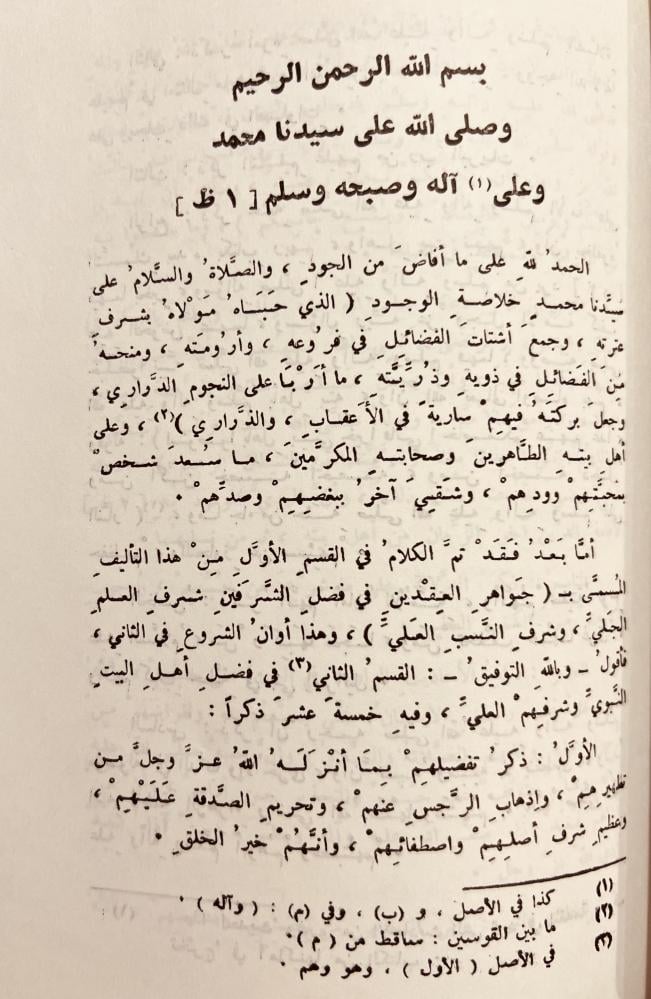 بسم الله الرحمن الرحيم
وصلى الله على سيدنا محمد
وعلى (١) آله وصبحه وسلم [ ١ ظ ]
الحمدُ للهِ على ما أفاضَ من الجودِ ، والصَّلاةُ والسَّلامُ على
سيِّدنا محمدٍ خلاصةِ الوجودِ ( الذي حَبَاهُ مَوْلاهُ بشرفِ
عترتهِ ، وجمعَ أشتاتَ الفضائلِ في فرُوعهِ ، وأرُومَتهِ ، ومنحهُ
مِنَ الفَضائلِ في ذويهِ وذرِّيَّتهِ ، ما أرْبَا على النجومِ الدَّرارِي ،
وجعلَ بركتَهُ فيهِمْ ساريةً في الأعقابِ ، والذَّرارِي )(٢) ، وعلى
أهلِ بيتهِ الطَّاهرينَ وصحابتهِ المكرَّمينَ ، ما سُعدَ شخصٌ
بمحبَّتِهِمْ وودِهِمْ ، وشَقِيَ آخرُ ببغضِهِمْ وصدِّهمْ .
أمَّا بَعْدُ فَقَدْ تمَّ الكلامُ في القسمِ الأوَّلِ مِنْ هذا التأليفِ
المُسمَّى بـ ( جَواهرِ العِقْدينِ في فضلِ الشَّرَفينِ شرفِ العلمِ
الجَليِّ ، وشرفِ النَّسبِ العَليِّ ) ، وهذا أوانُ الشروعِ في الثاني ،
فأقولُ ـ وباللهِ التوفيقُ ـ : القسمُ الثاني(٣) في فضلِ أهلِ البيتِ
النَّبويِّ وشرفِهِمْ العليِّ ، وفيهِ خمسةَ عشرَ ذكراً :
الأوَّلُ : ذكرُ تفضيلهِمْ بِمَا أنْزَلَهُ اللهُ عزَّ وجلَّ من
تطهيرِهِمْ ، وإذهابِ الرَّجسِ عنهمْ ، وتحريمِ الصَّدقةِ عَلَيْهِمْ ،
وعظيمِ شرفِ أصلِهِمْ واصطفائِهِم ، وأنَّهُمْ خيرُ الخلقِ .
(١) كذا في الأصل ، و (ب) ، وفي (م) : ( وآله ) .
(٢) ما بين القوسين : ساقط من ( م ) .
(٣) في الأصل ( الأول ) ، وهو وهم .